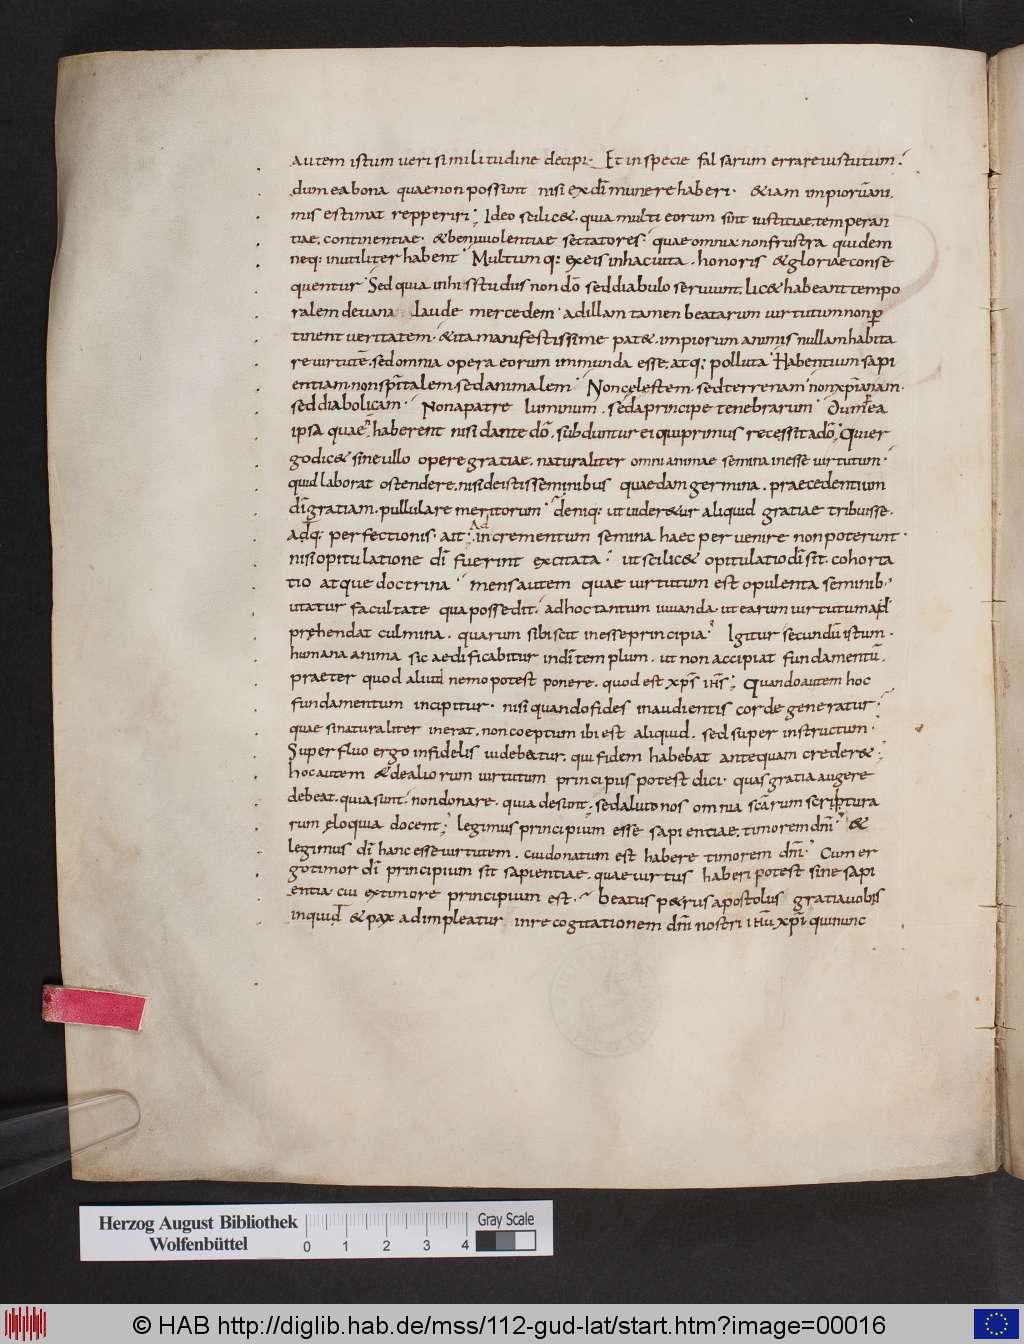 autem istum veri similitudine decipi. Et in specie falsarum errare virtutum.
dum ea bona quae non possunt nisi ex dī munere haberi. &iam impiorū ani
mis estimat repperiri; Ideo scilic& quia multi eorum sint iustitiae, temperan
tiae, continentiae, & benivolentiae sectatores, quae omnia non frustra quidem
neq; inutiliter habent. Multumq; ex eis in hac vita honoris & gloriae conse
quentur. Sed quia in his studiis non dō sed diabulo serviunt, lic& habeant tempo
ralem de vana laude mercedem. ad illam tamen beatarum virtutum non p
tinent veritatem. & ita manifestissime pat&. impiorum animis nullam habita
re virtutē. sed omnia opera eorum immunda esse, atq; polluta. Habentium sapi
entiam non spītalem sed animalem. Non cęlestem. sed terrenam. non xpīanam.
sed diabolicam. Non a patre luminum. sed a principe tenebrarum. Dum & ea
ipsa quae haberent nisi dante dō. subduntur ei qui primus recessit a dō; Qui er
go dic& sine ullo opere gratiae. naturaliter omni animae semina inesse virtutum.
quid laborat ostendere. nisi de istis seminibus quaedam germina. praecedentium
dī gratiam. pullulare meritorum. deniq; ut videret&ur aliquid gratiae tribuisse.
adq; perfectionis. ait; Ad incrementum semina haec pervenire non poterunt.
nisi opitulatione dī fuerint excitata. ut scilic& opitulatio dī sit. cohorta
tio atque doctrina. mens autem quae virtutum est opulenta seminib;
utatur facultate qua possedit. ad hoc tantum iuvanda. ut earum virtutum ad
pręhendat culmina. quarum sibi scit inesse principia. Igitur secundū istum.
humana anima sic aedificabitur in dī templum. ut non accipiat fundamentū.
praeter quod aliud nemo potest ponere. quod est xpī iħs; Quando autem hoc
fundamentum incipitur. nisi quando fides in audientis corde generatur.
quae si naturaliter inerat. non coeptum ibi est aliquid. sed super instructum.
Superfluo ergo infidelis videbatur. qui fidem habebat antequam creder&;
hoc autem & de aliorum virtutum principiis potest dici. quas gratia augere
debeat. quia sunt. non donare. quia desunt. sed aliut nos omnia scārum scriptura
rum ęloquia docent; legimus principium esse sapientiae, timorem dnī. &
legimus dī hanc esse virtutem. cui donatum est habere timorem dnī. Cum er
go timor dī principium sit sapientiae. quae virtus haberi potest sine sapi
entia cui ex timore principium est. beatus p&rus apostolus gratia vobis
inquid & pax adimpleatur in recogitationem dnī nostri iħu xpī qui nunc
Herzog August Bibliothek
Wolfenbüttel
0 1 2 3 4
Gray Scale
© HAB http://diglib.hab.de/mss/112-gud-lat/start.htm?image=00016